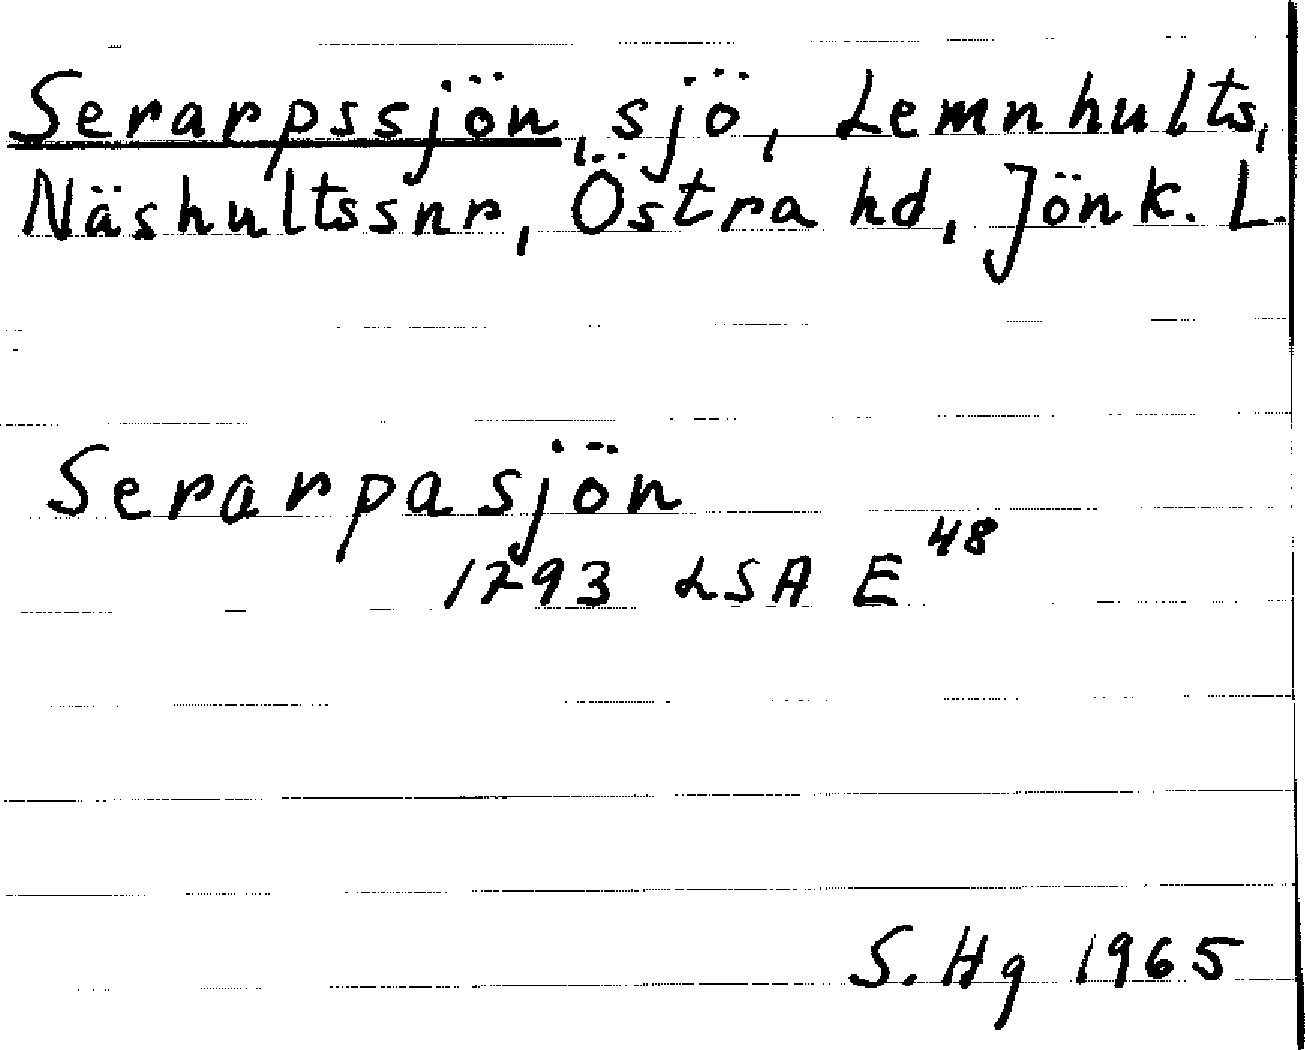 Serarpssjön, sjö, Lemnhults,
Näshultssnr, Östra hd, Jönk. L.
Serarpasjön
1793 LSA E 48
S. Hg 1965